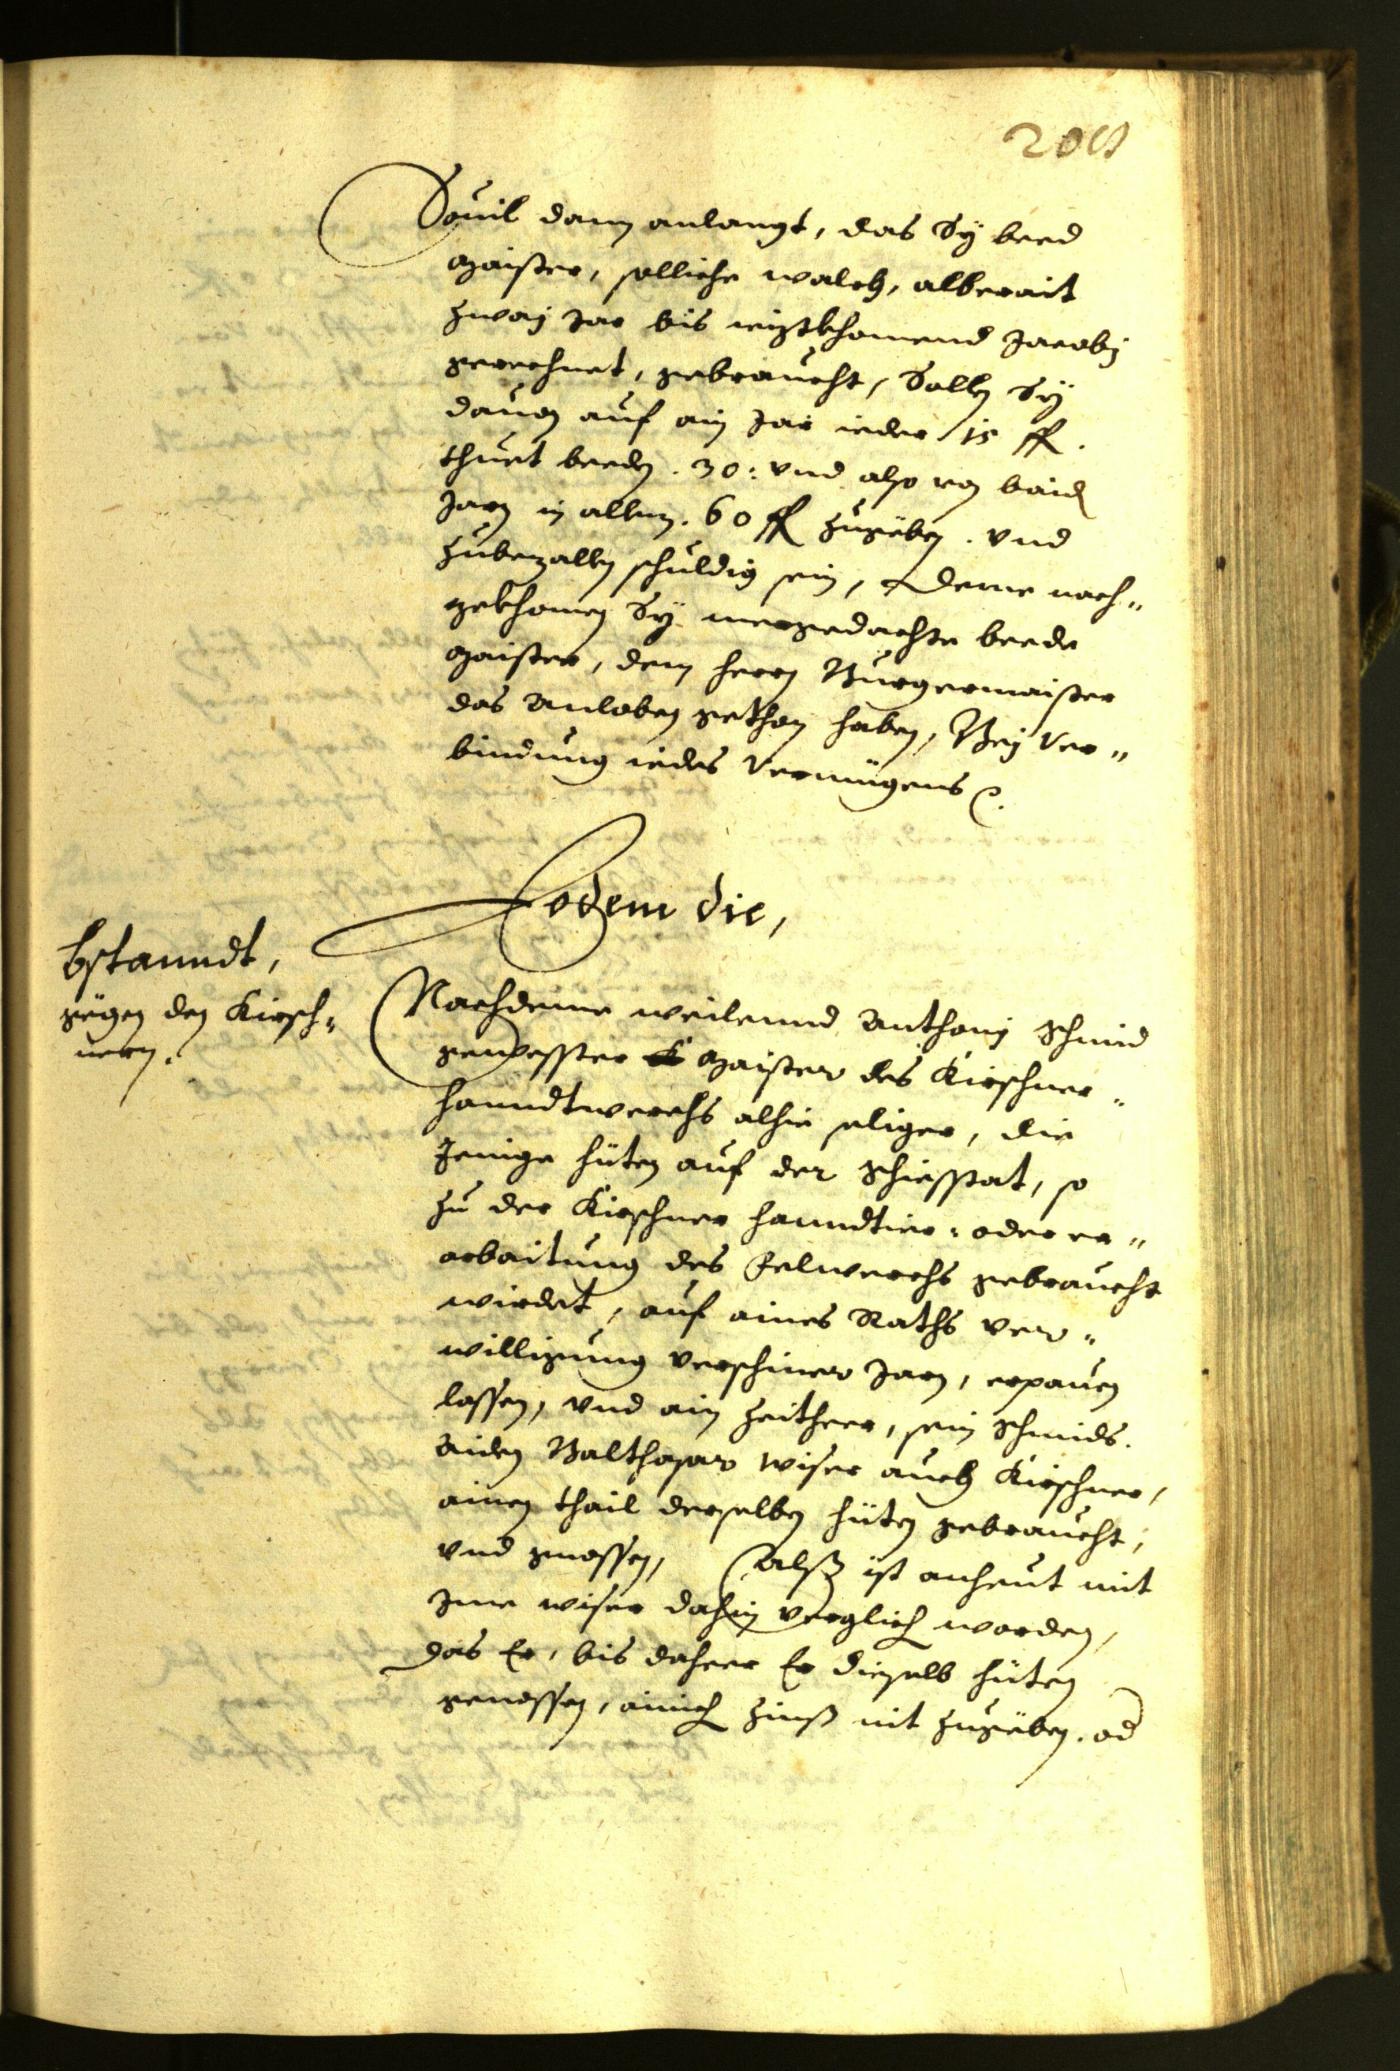 209
Souil dann anlangt, das Sÿ beed
Maister, solliche walch, alberait
zwaÿ Jar bis nigstkhomend Jacobj
gerechnet, gebraucht, Sollen Sÿ
dauon auf ain Jar ieder 15 fl.
thuet beeden . 30 : vnd also von baiden
Jarn in allem . 60 fl zugeben . vnd
zubezallen schuldig sein, Deme nach„
gekhomen Sÿ mergedachte beede
Maister, dem herrn Burgermaister
das Anloben gethan haben, Beÿ Ver„
bindung iedes Vermügens
Eodem die,
bstanndt,
gegen den Kirsch„
nern.
Nachdeme weilennd Anthonj Schmid
gewesster Maister des Kirschner„
hanndtwerchs alhie seliger, die
Jenige hüten auf der Schiesstat, so
zu der Kirschner hanndtier: oder er„
arbaitung des Felwerchs gebraucht
wirdet, auf aines Raths ver„
willigung verschiner Jarn, erpauen
lassen, vnd ain Zeitheer, sein Schmids
Aiden Balthasar Wiser auch Kirschner,
ainen thail derselben hüten gebraucht,
vnd gnossen, Alß ist anheut mit
Jme Wiser dahin verglichen worden,
das Er, bis daheer Er dieselb hüten
genossen, ainichen Zinß nit zugeben . od